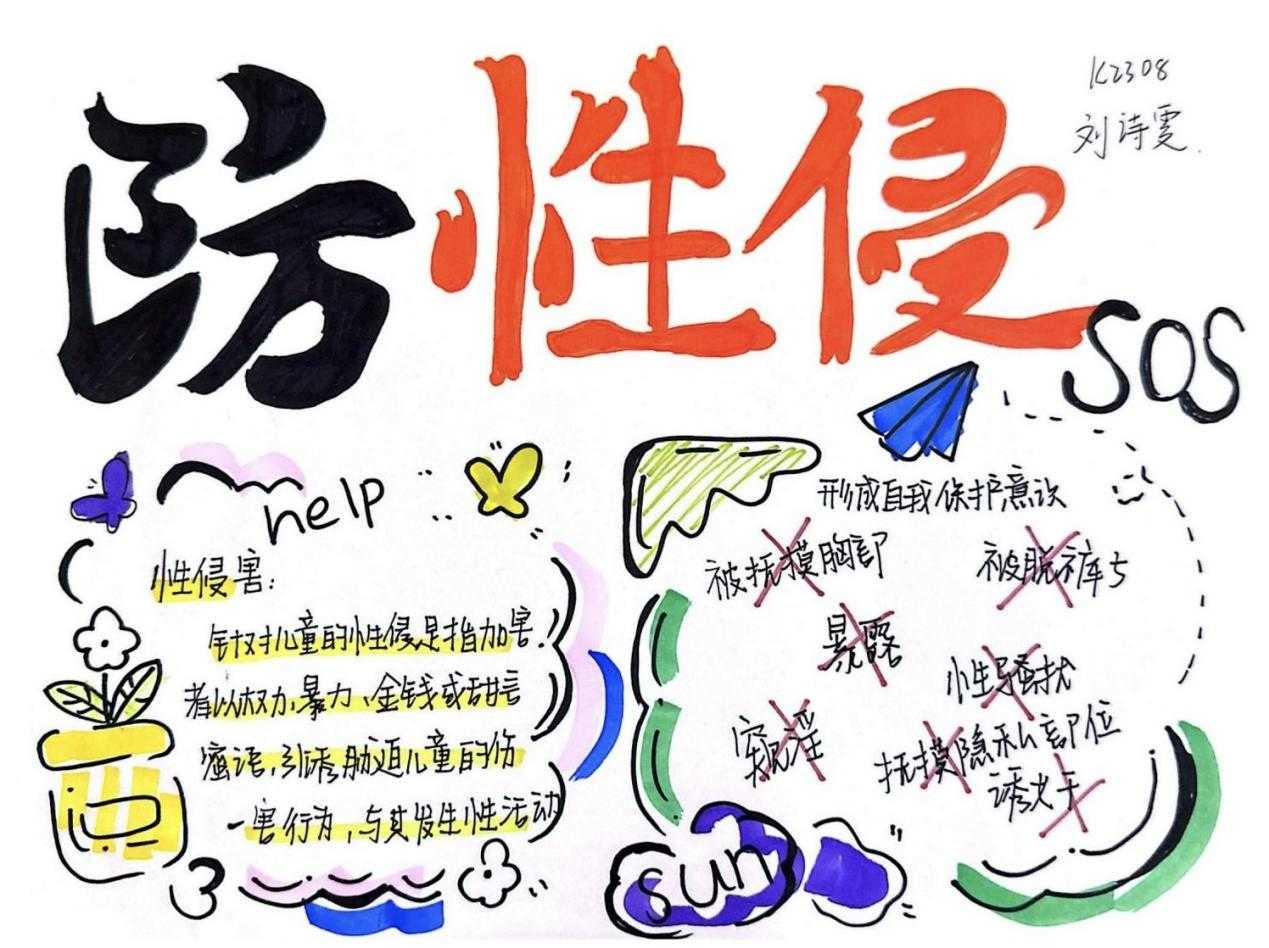 防性侵
K2308
刘诗雯
SOS
help
性侵害:
针对儿童的性侵是指加害
者以权力、暴力、金钱或甜言
蜜语,引诱胁迫儿童的伤
害行为,与其发生性活动
形成自我保护意识
被抚摸胸部
被脱裤子
暴露
性骚扰
窥淫
抚摸隐私部位
诱
sun